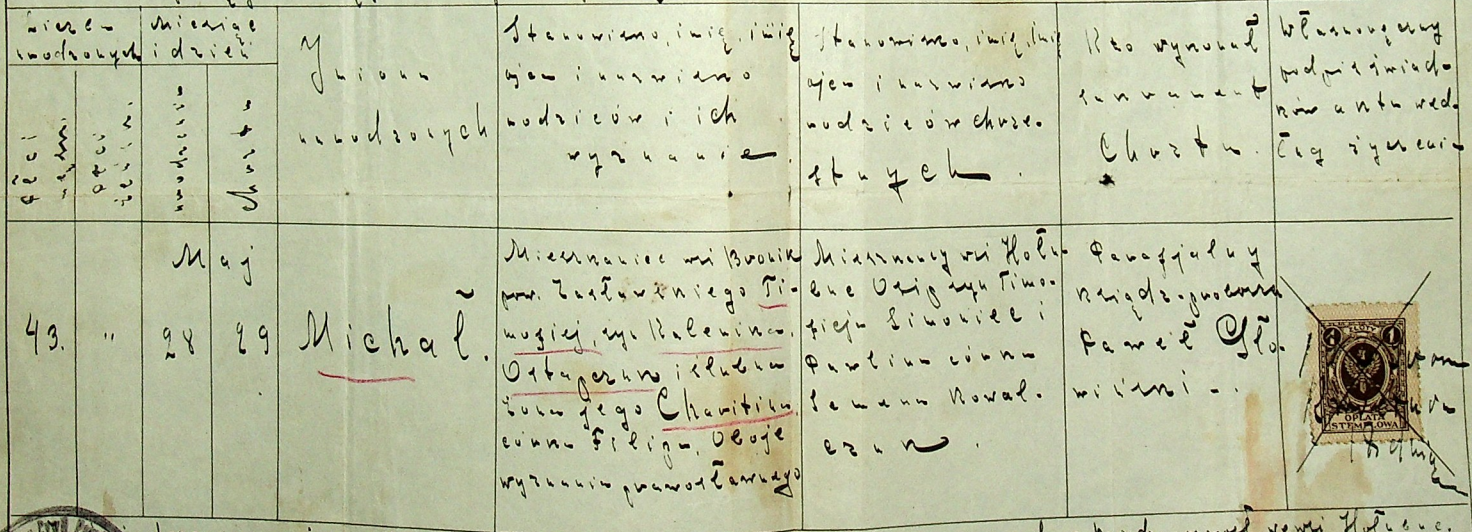 Liczba
urodzonych
Miesiąc
i dzień
Płci
męzk.
Płci
żeńs.
urodzenia
Chrztu
Imiona
urodzonych
Stanowisko, imię, imię
ojca i nazwisko
rodziców i ich
wyznanie.
Stanowisko, imię, imię
ojca i nazwisko
rodziców chrze-
stnych.
Kto wykonał
sakrament
Chrztu.
Własnoręczny
podpis świad-
ków aktu wed-
ług życzenia
43.
"
Maj
28 29
Michał.
Mieszkaniec wsi Bronik
pow. Zasławskiego Ti-
mofiej, syn Kalenika
Ostapczuk i ślubna
żona jego Charitina
córka Filipa, Oboje
wyznania prawosławnego
Mieszkańcy wsi Hołu-
Osip syn Timo-
fieja Simoniec i
Pawlina córka
Semena Kowal-
czuk.
Parafjalny
ksiądz-proboszcz
Paweł Gło-
wiński.
1 ZŁOTY 1
OPŁATA
STEMPLOWA